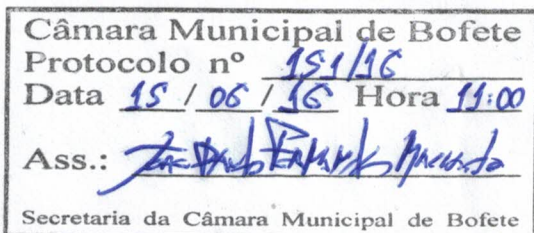 Câmara Municipal de Bofete
Protocolo nº 151/16
Data 15 / 06 / 16 Hora 11:00
Ass.:
Secretaria da Câmara Municipal de Bofete